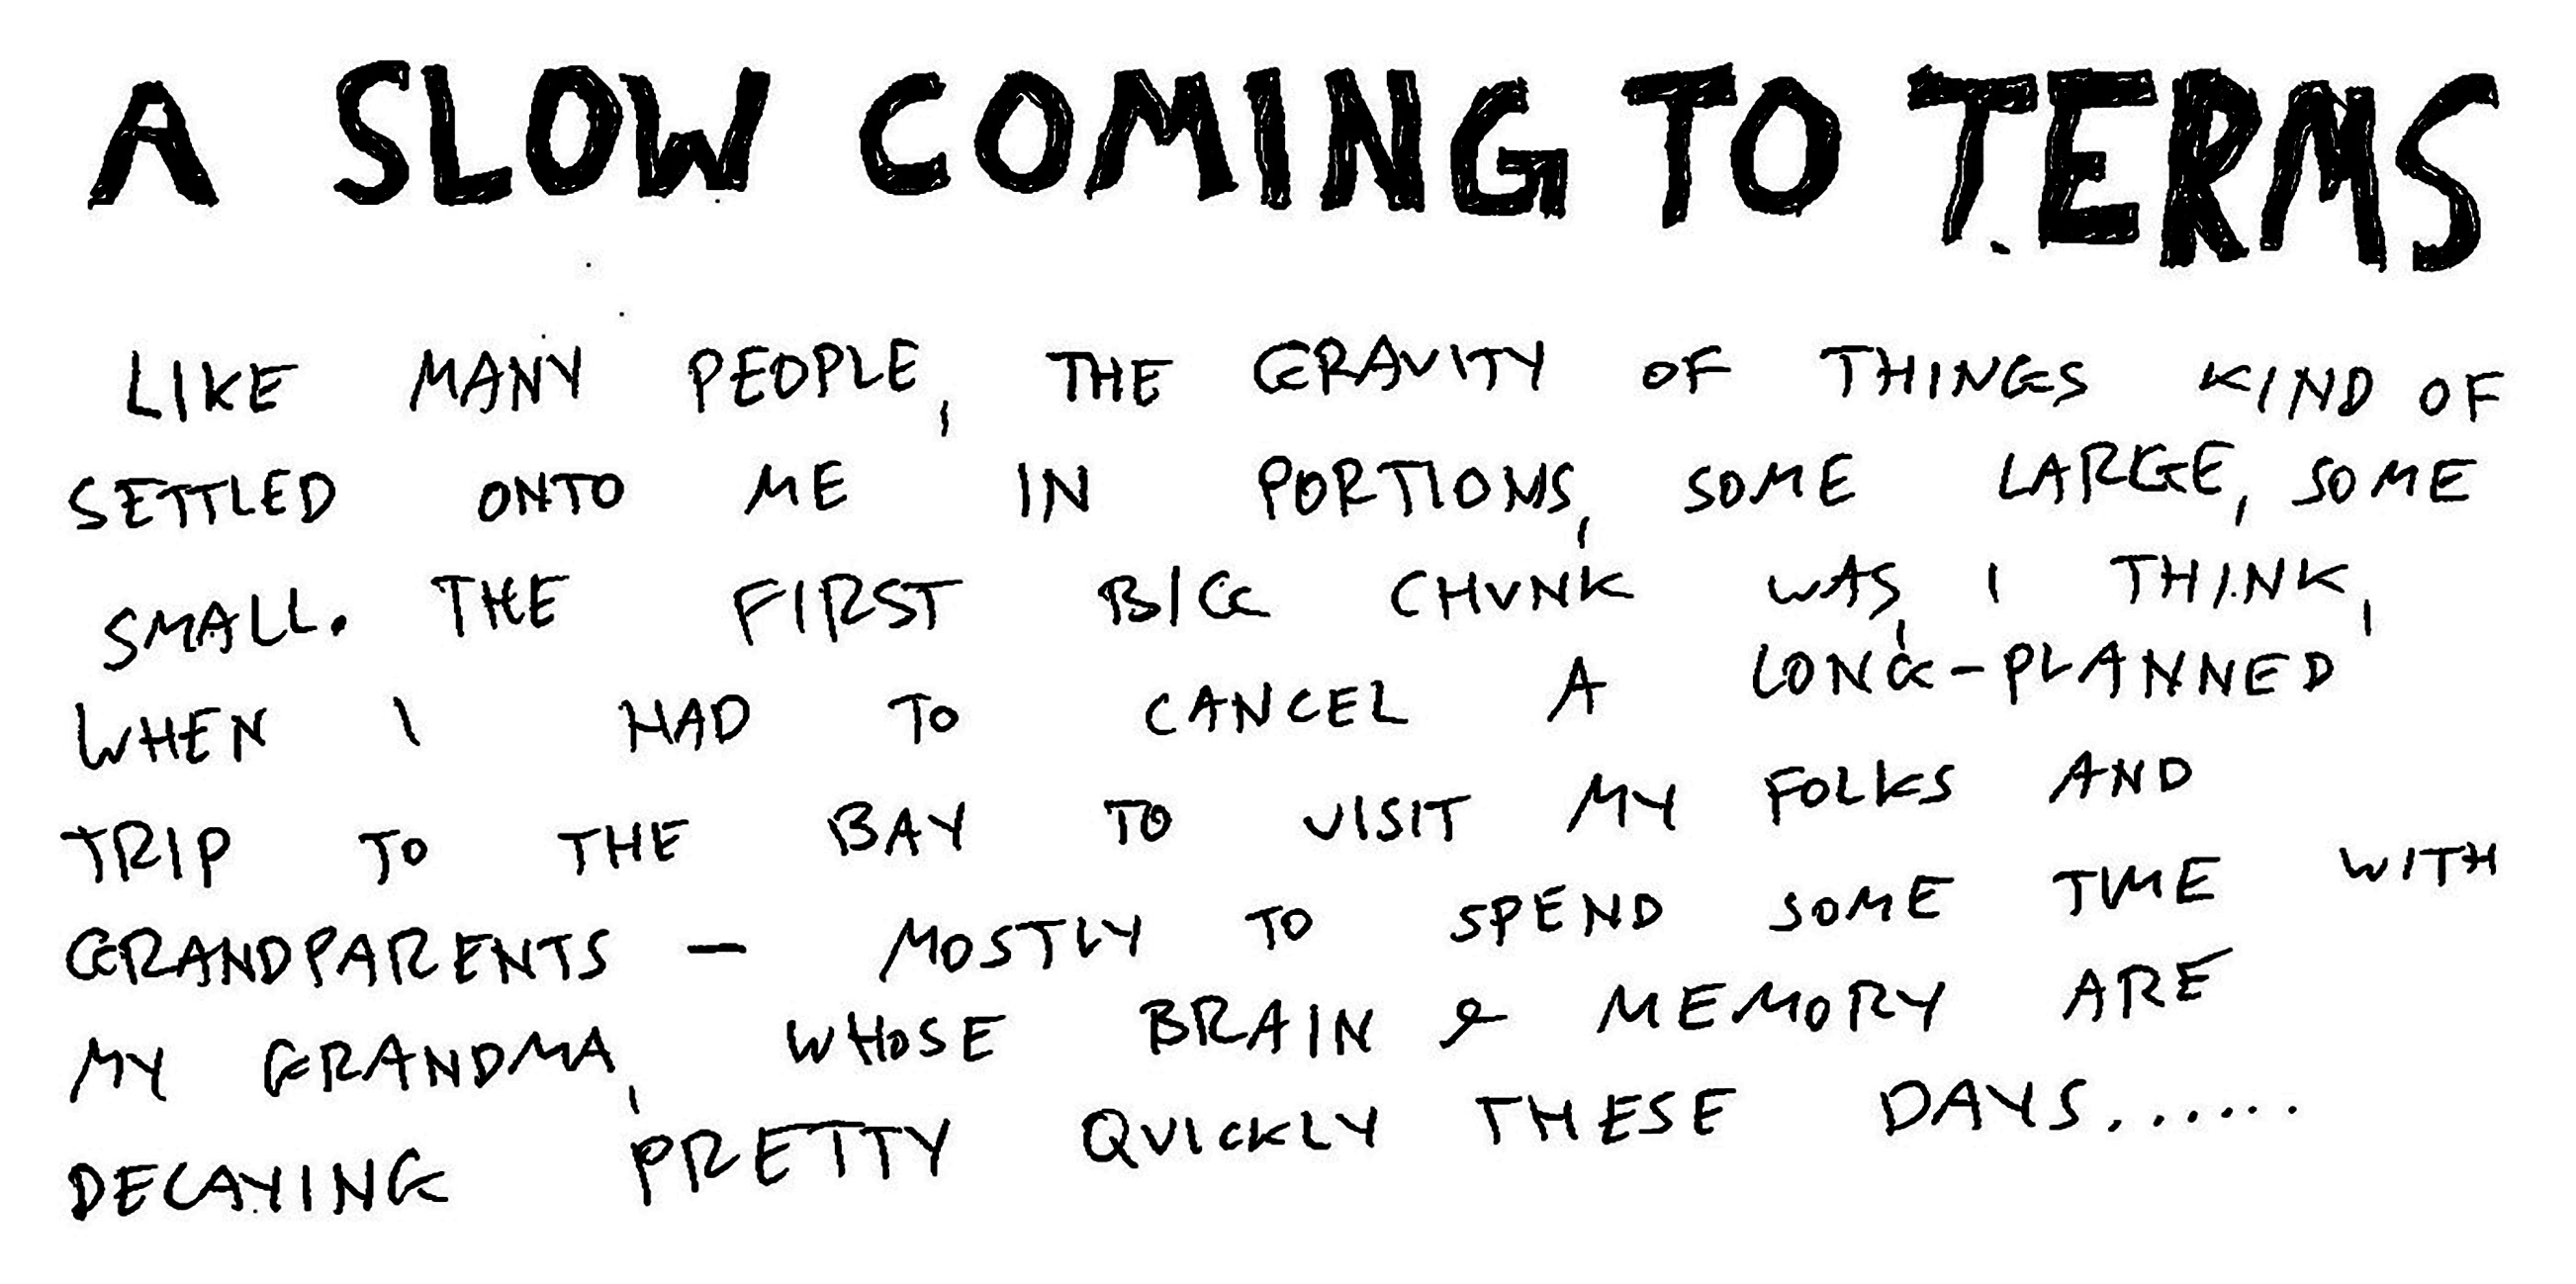 A SLOW COMING TO TERMS
LIKE MANY PEOPLE, THE GRAVITY OF THINGS KIND OF
SETTLED ONTO ME IN PORTIONS, SOME LARGE, SOME
SMALL. THE FIRST BIG CHUNK WAS, I THINK,
WHEN I HAD TO CANCEL A LONG-PLANNED
TRIP TO THE BAY TO VISIT MY FOLKS AND
GRANDPARENTS — MOSTLY TO SPEND SOME TIME WITH
MY GRANDMA, WHOSE BRAIN & MEMORY ARE
DECAYING PRETTY QUICKLY THESE DAYS......